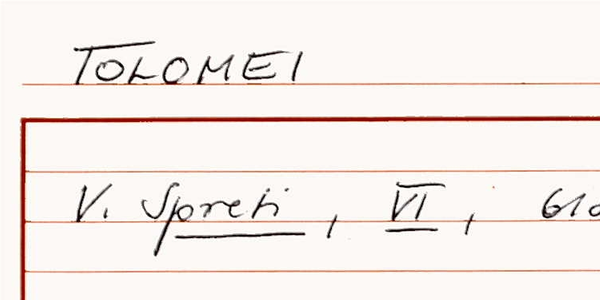 TOLOMEI
V. Spreti, VI, 610